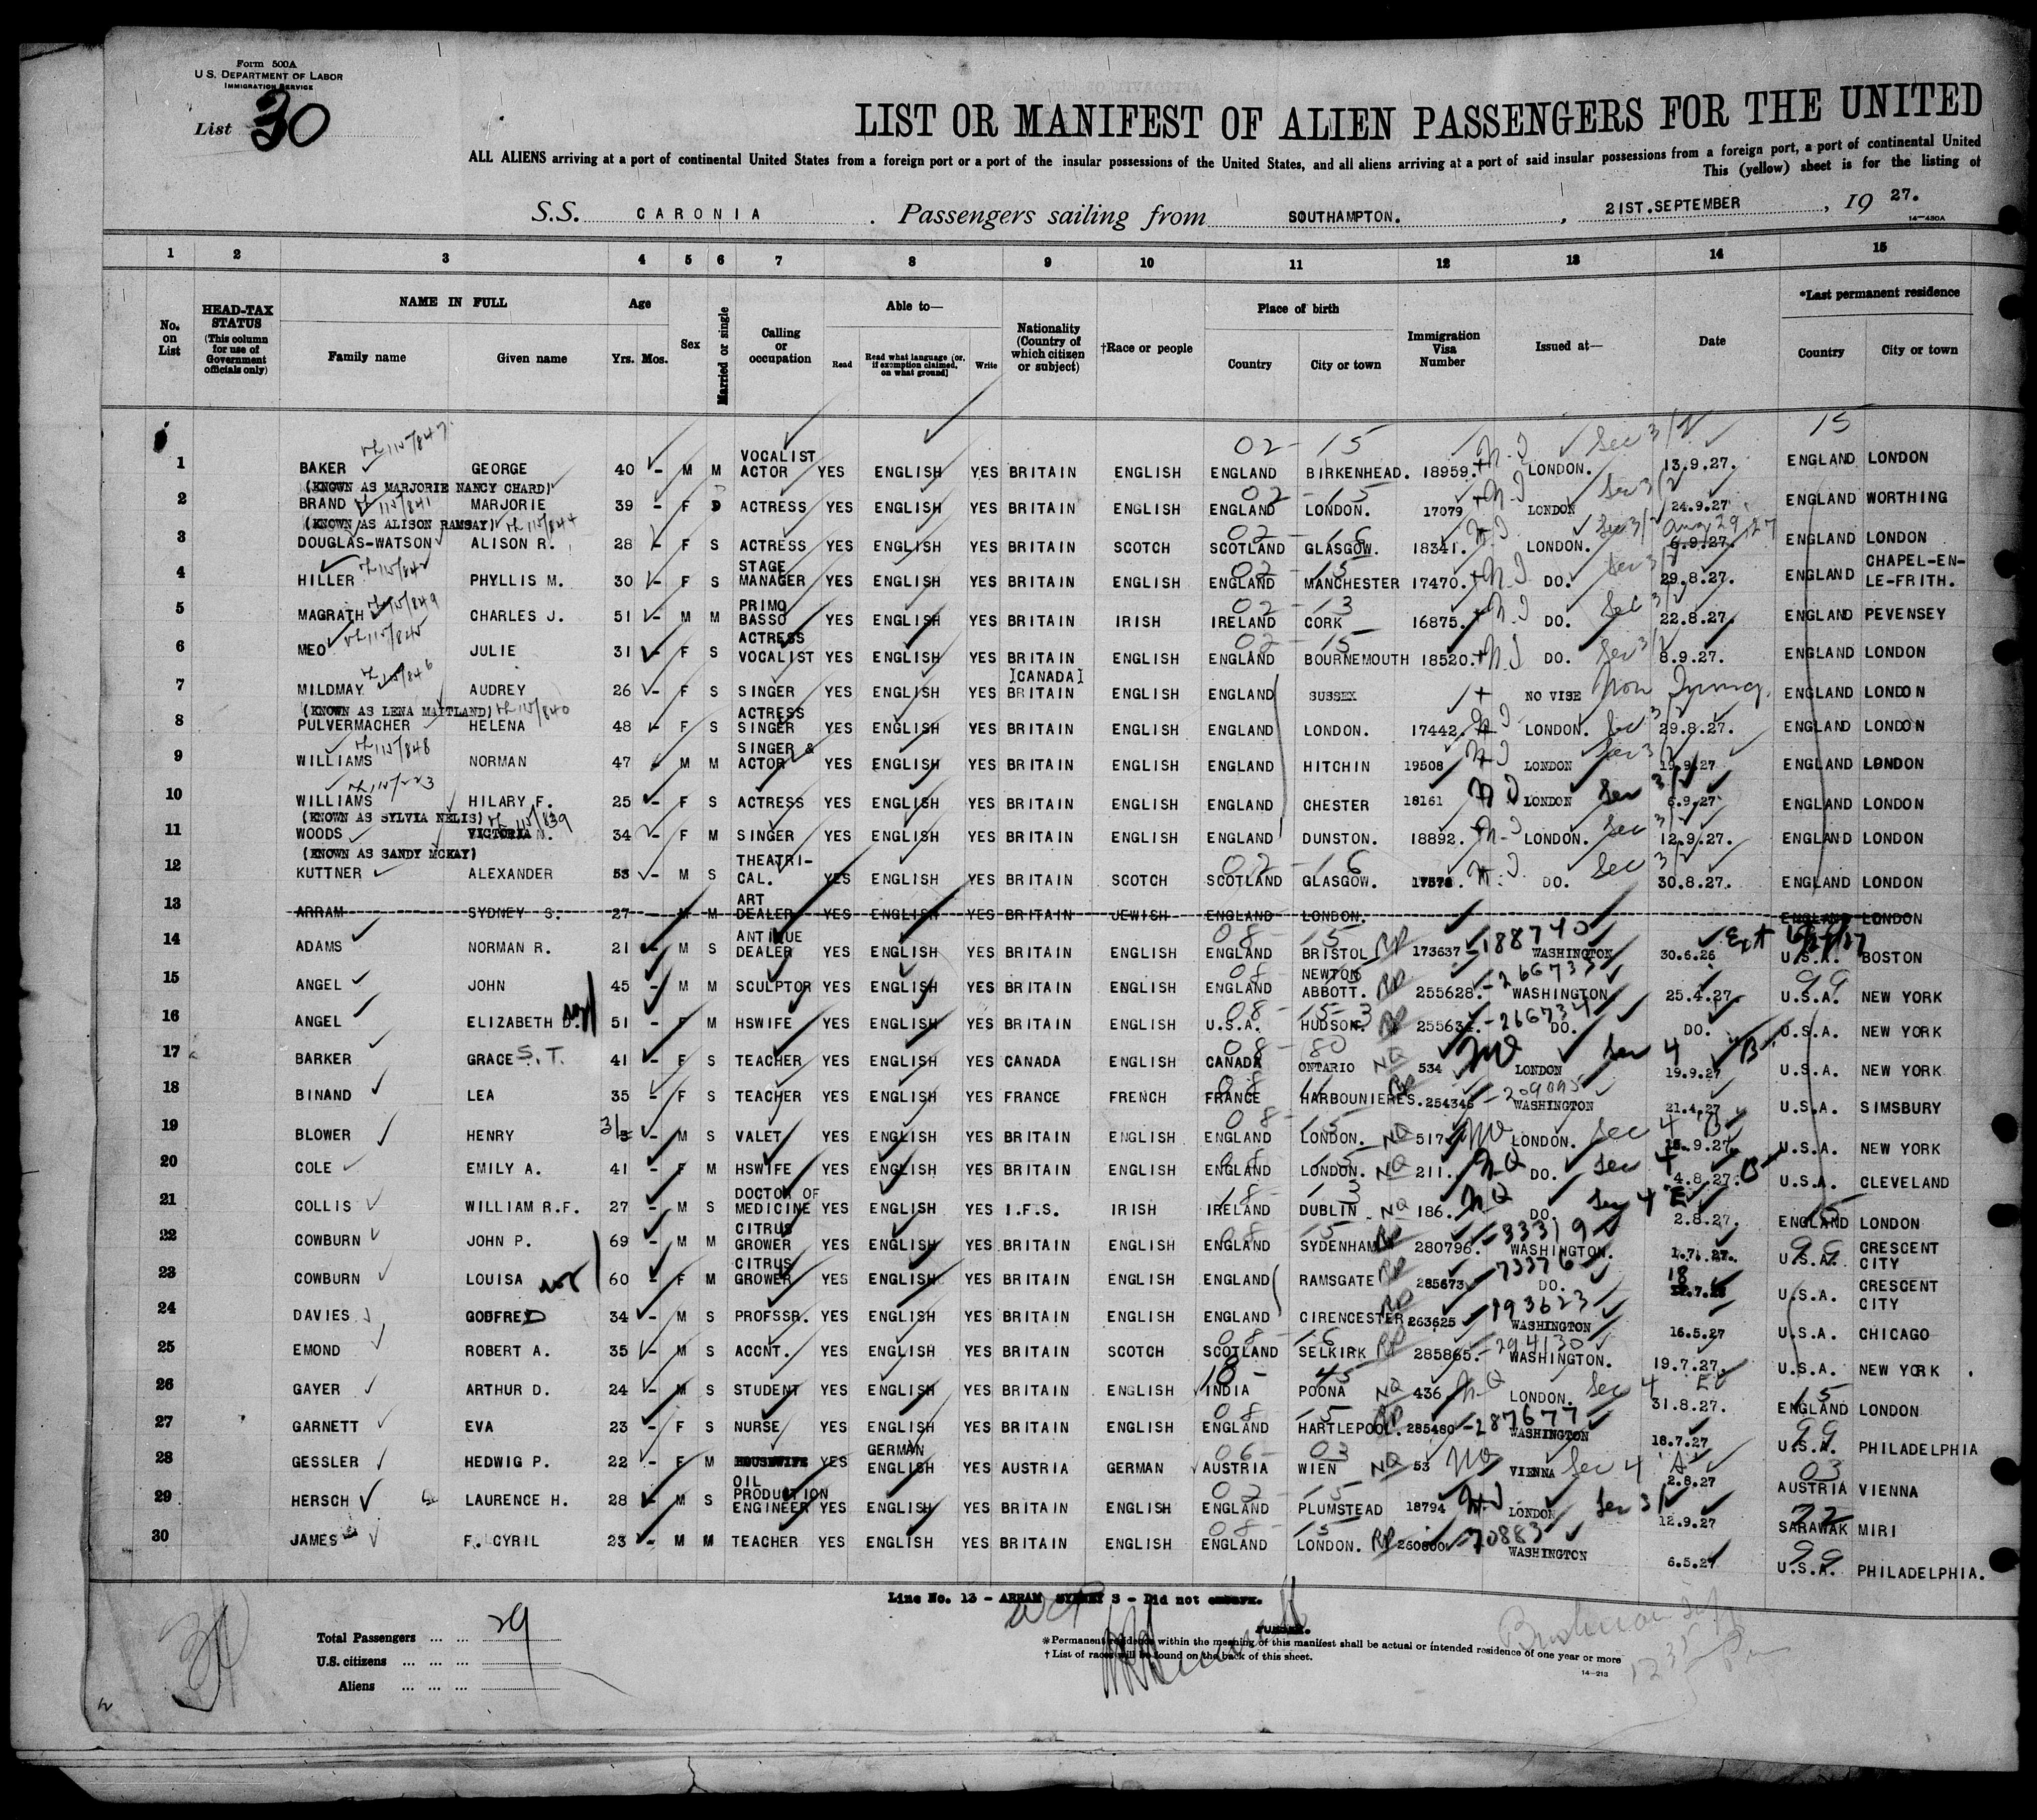 Form 500A
U.S. DEPARTMENT OF LABOR
IMMIGRATION SERVICE
List 30
LIST OR MANIFEST OF ALIEN PASSENGERS FOR THE UNITED
ALL ALIENS arriving at a port of continental United States from a foreign port or a port of the insular possessions of the United States, and all aliens arriving at a port of said insular possessions from a foreign port, a port of continental United
This (yellow) sheet is for the listing of
S.S. CARONIA. Passengers sailing from SOUTHAMPTON., 21ST.SEPTEMBER, 19 27.
14-430A
1 2 3 4 5 6 7 8 9 10 11 12 13 14 15
No. on List HEAD-TAX STATUS (This column for use of Government officials only) NAME IN FULL Family name Given name Age Yrs. Mos. Sex Married or single Calling or occupation Able to— Read Read what language [or, if exemption claimed, on what ground] Write Nationality (Country of which citizen or subject) †Race or people Place of birth Country City or town Immigration Visa Number Issued at— Date *Last permanent residence Country City or town
02 - 15 Sec 3/2 15
1 BAKER GEORGE 40 - M M VOCALIST ACTOR YES ENGLISH YES BRITAIN ENGLISH ENGLAND BIRKENHEAD. 18959. LONDON. 13.9.27. ENGLAND LONDON
(KNOWN AS MARJORIE NANCY CHARD)
2 BRAND MARJORIE 39 - F D ACTRESS YES ENGLISH YES BRITAIN ENGLISH ENGLAND LONDON. 17079 LONDON 24.9.27 ENGLAND WORTHING
(KNOWN AS ALISON RAMSAY)
3 DOUGLAS-WATSON ALISON R. 28 - F S ACTRESS YES ENGLISH YES BRITAIN SCOTCH SCOTLAND GLASGOW. 18341. LONDON. 6.9.27. Aug 29 27 ENGLAND LONDON
4 HILLER PHYLLIS M. 30 - F S STAGE MANAGER YES ENGLISH YES BRITAIN ENGLISH ENGLAND MANCHESTER 17470. DO. 29.8.27. ENGLAND CHAPEL-EN-LE-FRITH.
5 MAGRATH CHARLES J. 51 - M M PRIMO BASSO YES ENGLISH YES BRITAIN IRISH IRELAND CORK 16875. DO. 22.8.27. ENGLAND PEVENSEY
6 MEO JULIE 31 - F S ACTRESS VOCALIST YES ENGLISH YES BRITAIN ENGLISH ENGLAND BOURNEMOUTH 18520. DO. 8.9.27. ENGLAND LONDON
7 MILDMAY AUDREY 26 - F S SINGER YES ENGLISH YES [CANADA] BRITAIN ENGLISH ENGLAND SUSSEX NO VISE Non Immig. ENGLAND LONDON
(KNOWN AS LENA MAITLAND)
8 PULVERMACHER HELENA 48 - F S ACTRESS SINGER YES ENGLISH YES BRITAIN ENGLISH ENGLAND LONDON. 17442. LONDON. 29.8.27. ENGLAND LONDON
9 WILLIAMS NORMAN 47 M M SINGER & ACTOR YES ENGLISH YES BRITAIN ENGLISH ENGLAND HITCHIN 19508 LONDON 19.9.27 ENGLAND LONDON
10 WILLIAMS HILARY F. 25 - F S ACTRESS YES ENGLISH YES BRITAIN ENGLISH ENGLAND CHESTER 18161 LONDON 6.9.27 ENGLAND LONDON
(KNOWN AS SYLVIA NELIS)
11 WOODS VICTORIA N. 34 - F M SINGER YES ENGLISH YES BRITAIN ENGLISH ENGLAND DUNSTON. 18892. LONDON. 12.9.27. ENGLAND LONDON
(KNOWN AS SANDY MCKAY)
12 KUTTNER ALEXANDER 53 - M S THEATRI-CAL. YES ENGLISH YES BRITAIN SCOTCH SCOTLAND GLASGOW. 17578. DO. 30.8.27. ENGLAND LONDON
13 ARRAM SYDNEY S. 27 - M M ART DEALER YES ENGLISH YES BRITAIN JEWISH ENGLAND LONDON. ENGLAND LONDON
14 ADAMS NORMAN R. 21 - M S ANTIQUE DEALER YES ENGLISH YES BRITAIN ENGLISH ENGLAND BRISTOL RP 173637 - 188740 WASHINGTON 30.6.26 U.S.A. BOSTON
15 ANGEL JOHN 45 - M M SCULPTOR YES ENGLISH YES BRITAIN ENGLISH ENGLAND NEWTON ABBOTT. RP 255628. - 266733 WASHINGTON 25.4.27. U.S.A. NEW YORK
16 ANGEL ELIZABETH D. 51 - F M HSWIFE YES ENGLISH YES BRITAIN ENGLISH U.S.A. HUDSON. RP 255634. - 266734 DO. DO. U.S.A. NEW YORK
17 BARKER GRACE S.T. 41 - F S TEACHER YES ENGLISH YES CANADA ENGLISH CANADA ONTARIO NQ 534 LONDON Sec 4 B 19.9.27 U.S.A. NEW YORK
18 BINAND LEA 35 - F S TEACHER YES ENGLISH YES FRANCE FRENCH FRANCE HARBOUNIERES. 254346 WASHINGTON 21.4.27 U.S.A. SIMSBURY
19 BLOWER HENRY - M S VALET YES ENGLISH YES BRITAIN ENGLISH ENGLAND LONDON. NQ 517 LONDON. Sec 4 B U.S.A. NEW YORK
20 COLE EMILY A. 41 - F M HSWIFE YES ENGLISH YES BRITAIN ENGLISH ENGLAND LONDON. NQ 211. DO. Sec 4 B 4.8.27. U.S.A. CLEVELAND
21 COLLIS WILLIAM R.F. 27 - M S DOCTOR OF MEDICINE YES ENGLISH YES I.F.S. IRISH IRELAND DUBLIN NQ 186. DO. Sec 4 E 2.8.27. ENGLAND LONDON
22 COWBURN JOHN P. 69 - M M CITRUS GROWER YES ENGLISH YES BRITAIN ENGLISH ENGLAND SYDENHAM RP 280796. - 33319 WASHINGTON. 1.7.27. U.S.A. CRESCENT CITY
23 COWBURN LOUISA 60 - F M CITRUS GROWER YES ENGLISH YES BRITAIN ENGLISH ENGLAND RAMSGATE RP 285673 - 73376 DO. U.S.A. CRESCENT CITY
24 DAVIES GODFRED 34 - M S PROFSSR. YES ENGLISH YES BRITAIN ENGLISH ENGLAND CIRENCESTER RP 263625 - 193623 WASHINGTON 16.5.27 U.S.A. CHICAGO
25 EMOND ROBERT A. 35 - M S ACCNT. YES ENGLISH YES BRITAIN SCOTCH SCOTLAND SELKIRK RP 285865. - 294130 WASHINGTON. 19.7.27. U.S.A. NEW YORK
26 GAYER ARTHUR D. 24 - M S STUDENT YES ENGLISH YES BRITAIN ENGLISH INDIA POONA NQ 436 LONDON. Sec 4 E 31.8.27. ENGLAND LONDON
27 GARNETT EVA 23 - F S NURSE YES ENGLISH YES BRITAIN ENGLISH ENGLAND HARTLEPOOL. RP 285480 - 287677 WASHINGTON 18.7.27 U.S.A. PHILADELPHIA
28 GESSLER HEDWIG P. 22 - F M HOUSEWIFE YES GERMAN ENGLISH YES AUSTRIA GERMAN AUSTRIA WIEN NQ 53 VIENNA Sec 4 A 2.8.27 AUSTRIA VIENNA
29 HERSCH LAURENCE H. 28 - M S OIL PRODUCTION ENGINEER YES ENGLISH YES BRITAIN ENGLISH ENGLAND PLUMSTEAD 18794 LONDON Sec 3/2 12.9.27 SARAWAK MIRI
30 JAMES F. CYRIL 23 - M M TEACHER YES ENGLISH YES BRITAIN ENGLISH ENGLAND LONDON. RP 260800 - 70883 WASHINGTON 6.5.27 U.S.A. PHILADELPHIA.
Line No. 13 - ARRAM SYDNEY S - Did not embark.
PURSER.
Total Passengers ... ... 29
U.S. citizens ... ... ...
Aliens ... ... ...
*Permanent residence within the meaning of this manifest shall be actual or intended residence of one year or more
† List of races will be found on the back of this sheet.
14-213